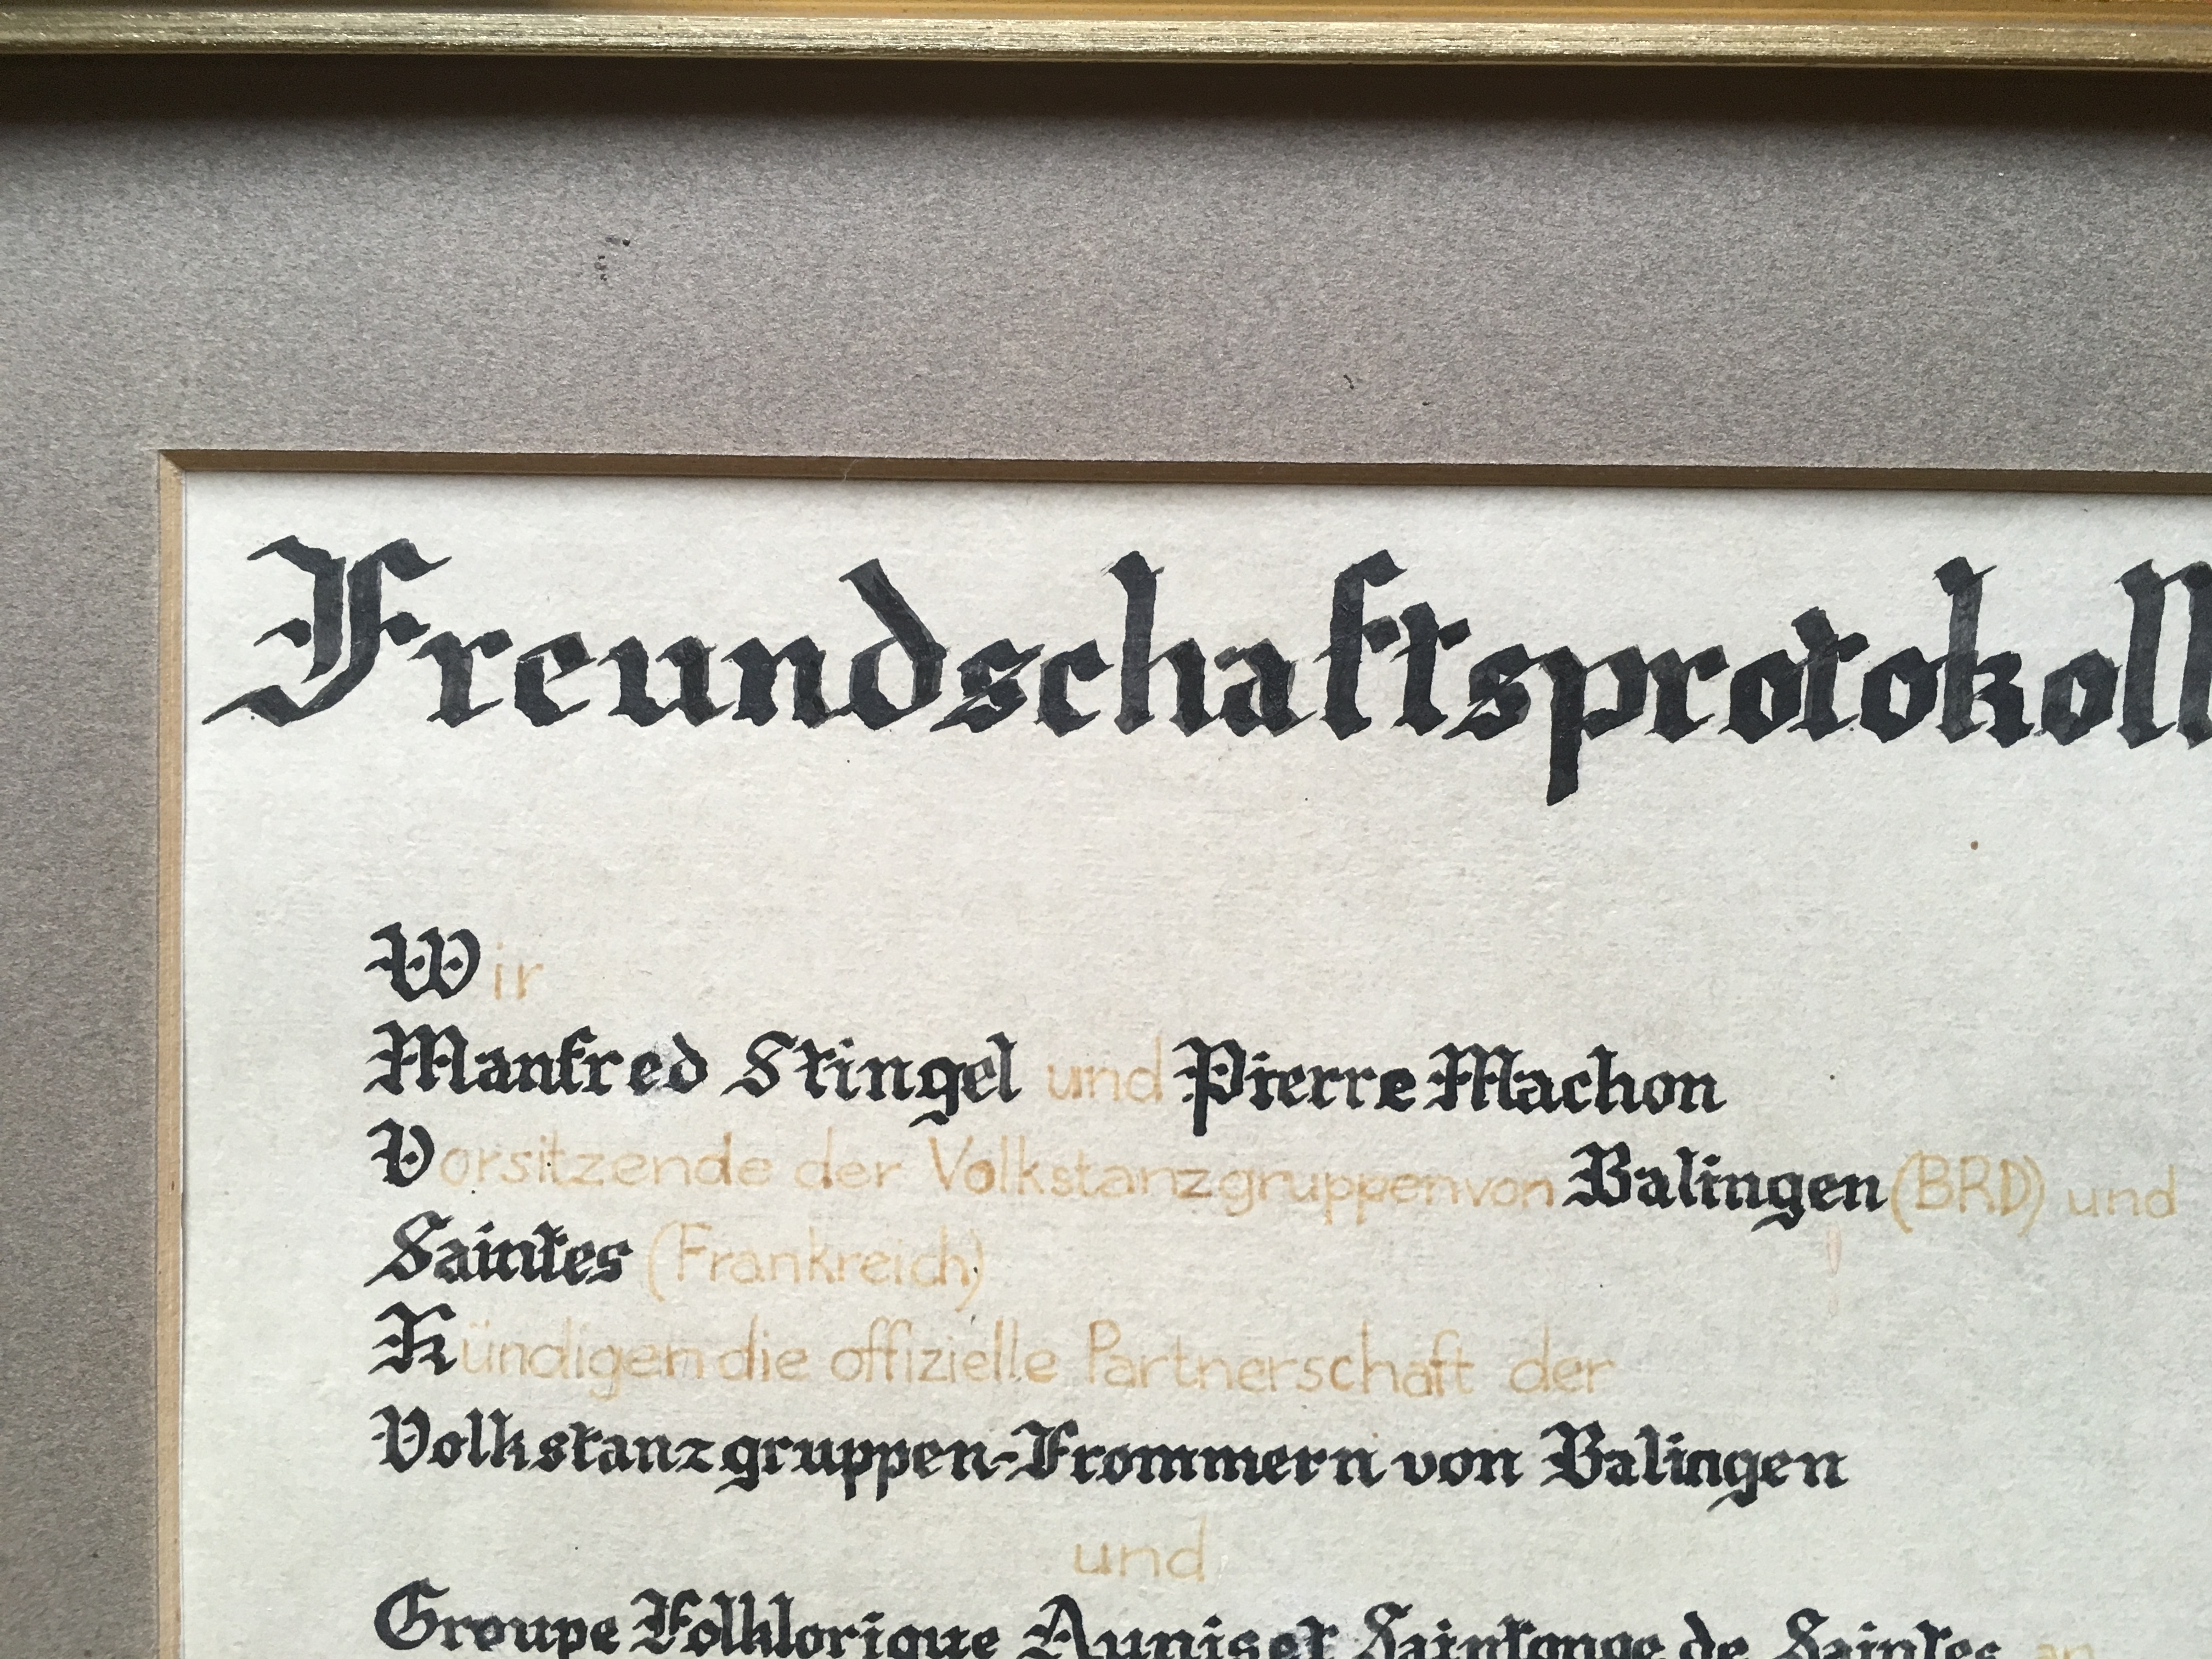 Freundschaftsprotokoll
Wir
Manfred Stingel und Pierre Machon
Vorsitzende der Volkstanzgruppen von Balingen (BRD) und
Saintes (Frankreich)
Kündigen die offizielle Partnerschaft der
Volkstanzgruppen-Frommern von Balingen
und
Groupe Folklorique Aunis et Saintonge de Saintes an